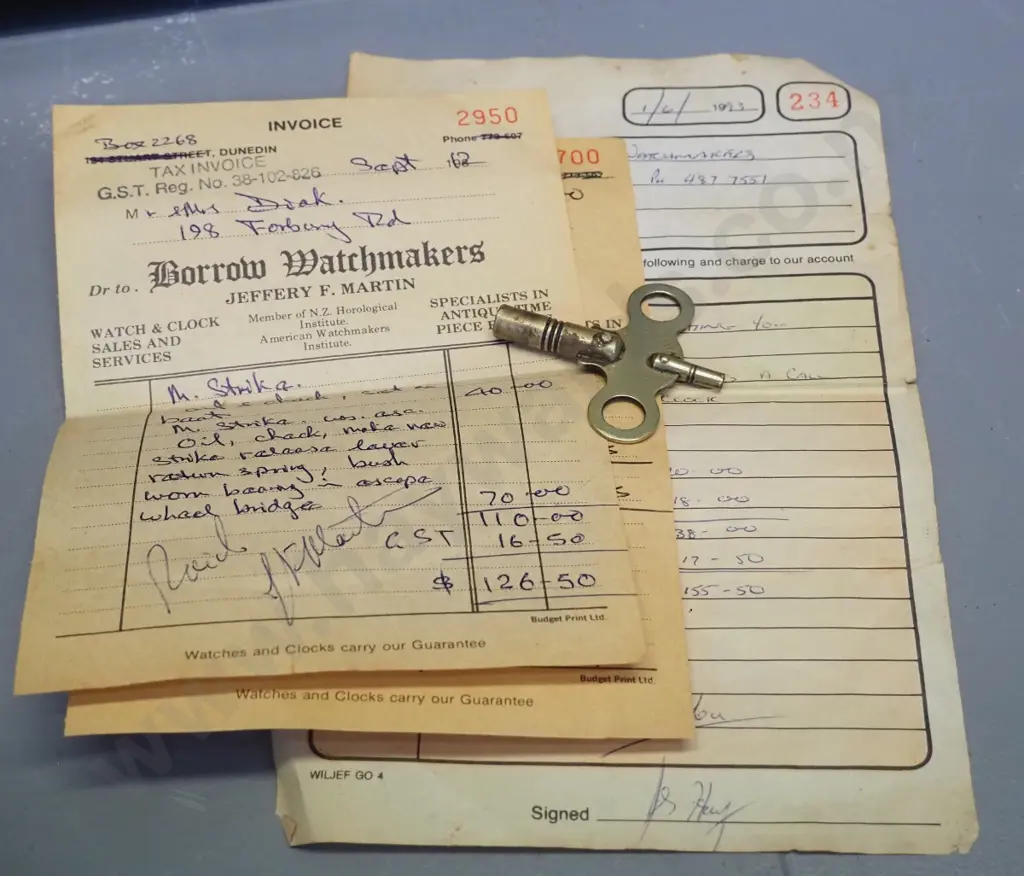 INVOICE
2950
Box 2268
Phone 779-607
194 STUART STREET, DUNEDIN
TAX INVOICE
Sept
G.S.T. Reg. No. 38-102-826
Mr &Mrs Doak.
198 Forbury Rd
Dr to . Borrow Watchmakers
JEFFERY F. MARTIN
WATCH & CLOCK
SALES AND
SERVICES
Member of N.Z. Horological
Institute.
American Watchmakers
Institute.
SPECIALISTS IN
TIME
M. Strike.
40-00
M. Strike
Oil, check, make new
strike release layer
return spring, bush
worn in escape
wheel bridge
70-00
110-00
GST 16-50
$ 126-50
Budget Print Ltd.
Watches and Clocks carry our Guarantee
700
TS IN
Budget Print Ltd.
Watches and Clocks carry our Guarantee
1/6/ 1993
234
WATCHMAKERS
Ph 487 7551
following and charge to our account
You
A CALL
CLOCK
18-00
38-00
17-50
155-50
WILJEF GO 4
Signed